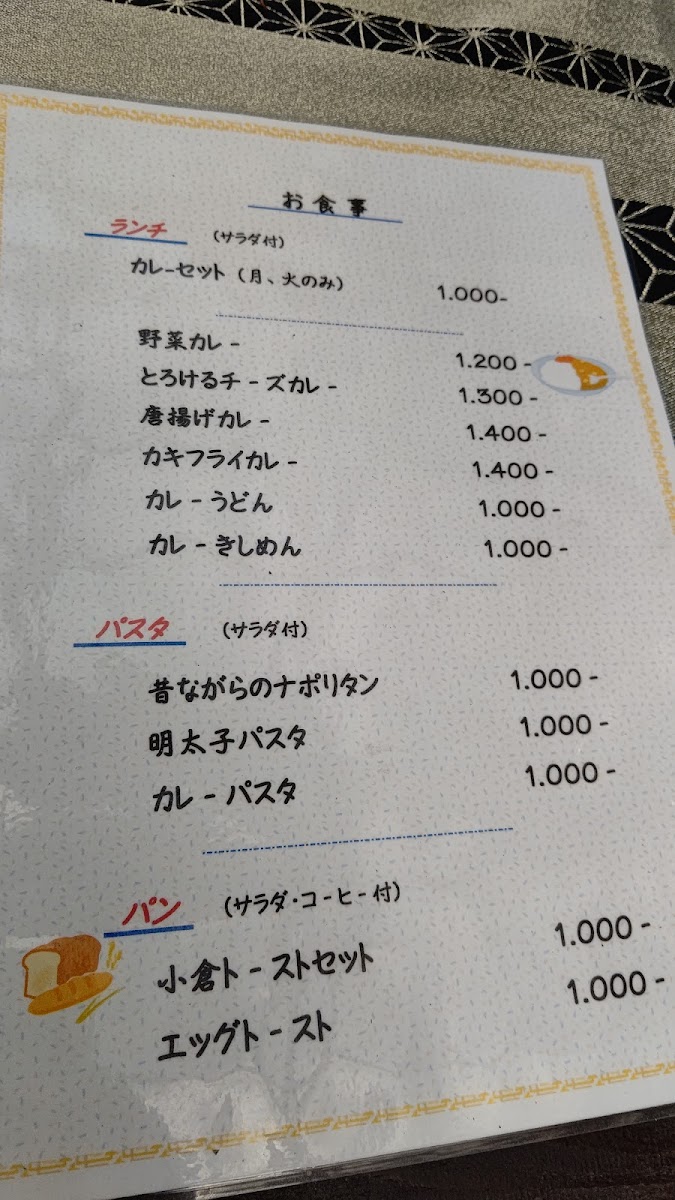 お食事
ランチ (サラダ付)
カレーセット (月、火のみ) 1.000-
野菜カレー 1.200-
とろけるチーズカレー 1.300-
唐揚げカレー 1.400-
カキフライカレー 1.400-
カレーうどん 1.000-
カレーきしめん 1.000-
パスタ (サラダ付)
昔ながらのナポリタン 1.000-
明太子パスタ 1.000-
カレーパスタ 1.000-
パン (サラダ・コーヒー付)
小倉トーストセット 1.000-
エッグトースト 1.000-